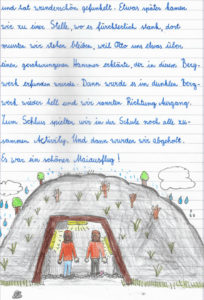 und hat wunderschön gefunkelt. Etwas später kamen
wir zu einer Stelle, wo es fürchterlich stank, dort
mussten wir stehen bleiben, weil Otto uns etwas über
einen geschwungenen Hammer erklärte, der in diesem Berg-
werk erfunden wurde. Dann wurde es im dunklen Berg-
werk wieder hell und wir rannten Richtung Ausgang.
Zum Schluss spielten wir in der Schule noch alle zu-
sammen Activity. Und dann wurden wir abgeholt.
Es war ein schöner Maiausflug!